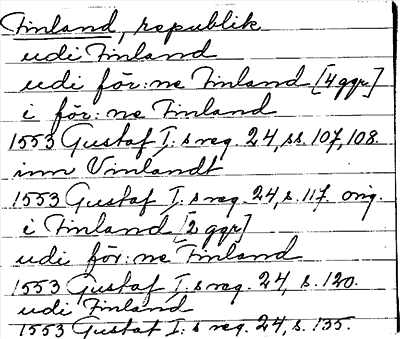 Finland, republik
udi Finland
udi för:ne Finland [4 ggr]
i för:ne Finland
1553 Gustaf I:s reg. 24, ss. 107, 108.
inn Vinlandt
1553 Gustaf I:s reg. 24, s. 117. orig.
i Finland [2 ggr]
udi för:ne Finland
1553 Gustaf I:s reg. 24, s. 120.
udi Finland
1553 Gustaf I:s reg. 24, s. 135.